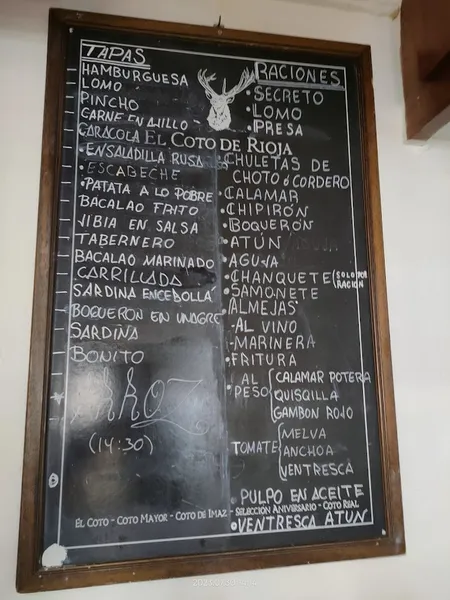 TAPAS
HAMBURGUESA
LOMO
PINCHO
CARNE EN AJILLO
CARACOLA
ENSALADILLA RUSA
ESCABECHE
PATATA A LO POBRE
BACALAO FRITO
JIBIA EN SALSA
TABERNERO
BACALAO MARINADO
CARRILLADA
SARDINA ENCEBOLLÁ
BOQUERON EN VINAGRE
SARDINA
BONITO
ARROZ
(14:30)
EL COTO DE RIOJA
RACIONES
SECRETO
LOMO
PRESA
CHULETAS DE
CHOTO ó CORDERO
CALAMAR
CHIPIRÓN
BOQUERÓN
ATÚN
AGUJA
CHANQUETE (SOLO POR RACIÓN
SAMONETE
ALMEJAS
-AL VINO
-MARINERA
FRITURA
AL PESO
CALAMAR POTERA
QUISQUILLA
GAMBON ROJO
TOMATE
MELVA
ANCHOA
VENTRESCA
PULPO EN ACEITE
EL COTO - COTO MAYOR - COTO DE IMAZ - SELECCIÓN ANIVERSARIO - COTO REAL
VENTRESCA ATUN